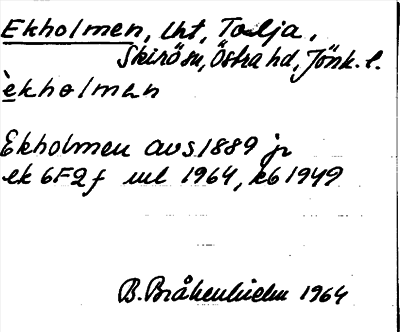 Ekholmen, lht, Tolja,
Skirö sn, Östra hd, Jönk. l.
èkholmen
Ekholmen avs. 1889 jr
ek 6F2f utl 1964, kb 1949
B. Bråkenhielm 1964